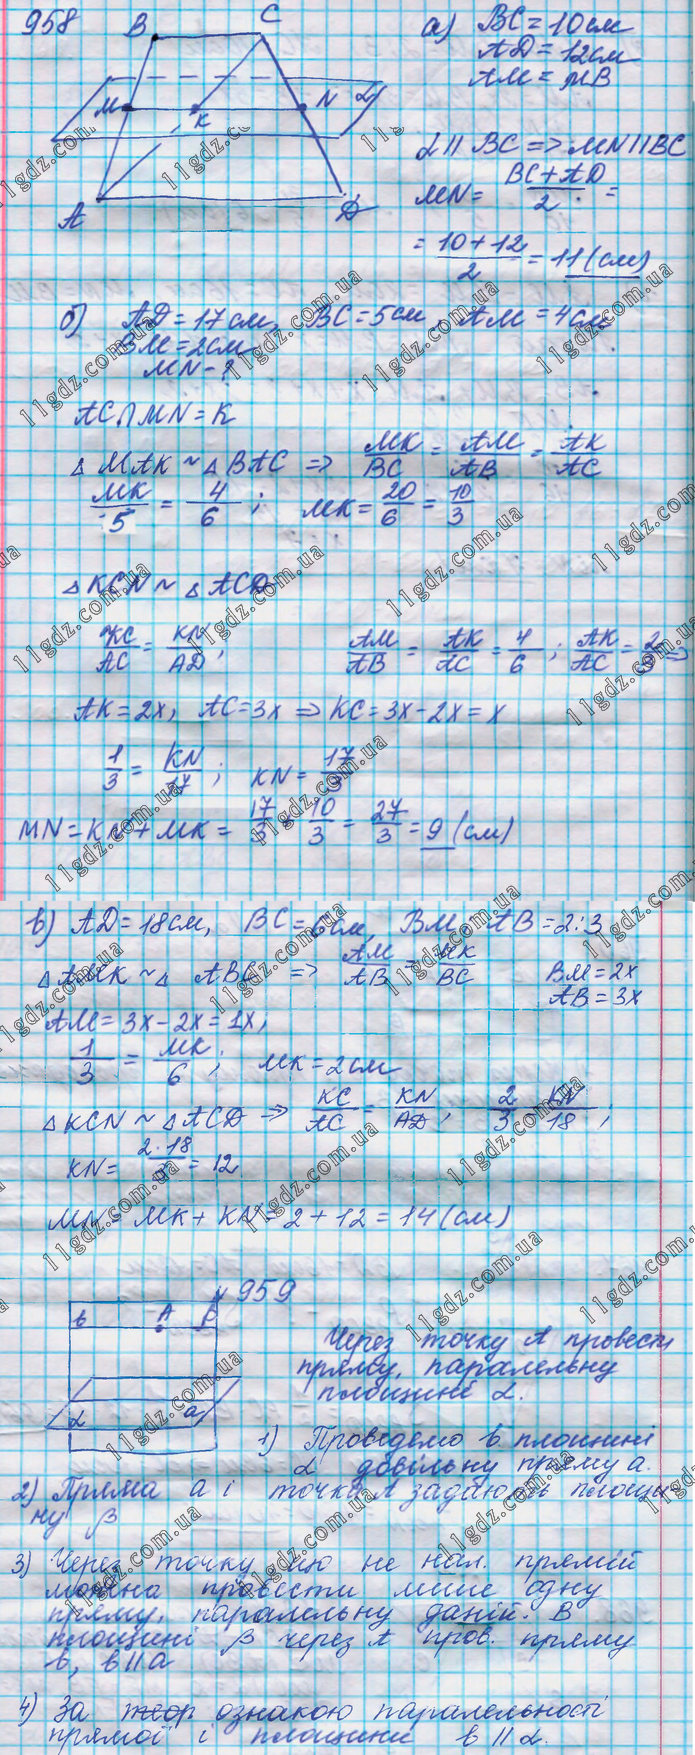 958
B C
M K N α
A D
а) BC = 10 см
AD = 12 см
AM = MB
α || BC => MN || BC
MN = BC + AD / 2 =
= 10 + 12 / 2 = 11 (см)
б) AD = 17 см, BC = 5 см, AM = 4 см
BM = 2 см
MN - ?
AC ∩ MN = K
△ MAK ~ △ BAC => MK / BC = AM / AB = AK / AC
MK / 5 = 4 / 6 ; MK = 20 / 6 = 10 / 3
△ KCN ~ △ ACD
KC / AC = KN / AD ; AM / AB = AK / AC = 4 / 6 ; AK / AC = 2 / 3 =>
AK = 2x, AC = 3x => KC = 3x - 2x = x
1 / 3 = KN / 17 ; KN = 17 / 3
MN = KN + MK = 17 / 3 + 10 / 3 = 27 / 3 = 9 (см)
в) AD = 18 см, BC = 6 см, BM : AB = 2 : 3
△ AMK ~ △ ABC => AM / AB = MK / BC BM = 2x
AB = 3x
AM = 3x - 2x = 1x,
1 / 3 = MK / 6 ; MK = 2 см
△ KCN ~ △ ACD => KC / AC = KN / AD ; 2 / 3 = KN / 18 ;
KN = 2 · 18 / 3 = 12
MN = MK + KN = 2 + 12 = 14 (см)
959
в A β
α a
Через точку А провести
пряму, паралельну
площине α.
1) Проведемо в площині
α довільну пряму а.
2) Пряма а і точка А задають площи
ну β
3) Через точку що не нал. прямій
можна провести лише одну
пряму, паралельну даній. В
площині β через А пров. пряму
в, в || а
4) За ознакою паралельності
прямої і площини в || α.
11gdz.com.ua